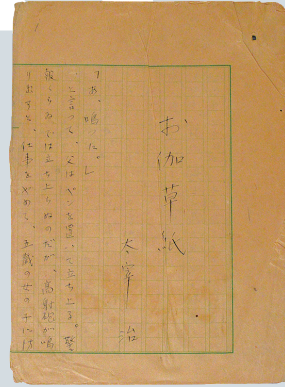 お伽草紙
太宰 治
「あ、鳴つた。」
と言つて、父はペンを置いて立ち上る。警
報くらゐでは立ち上らぬのだが、高射砲が鳴
り出すと、仕事をやめて、五歳の女の子に防